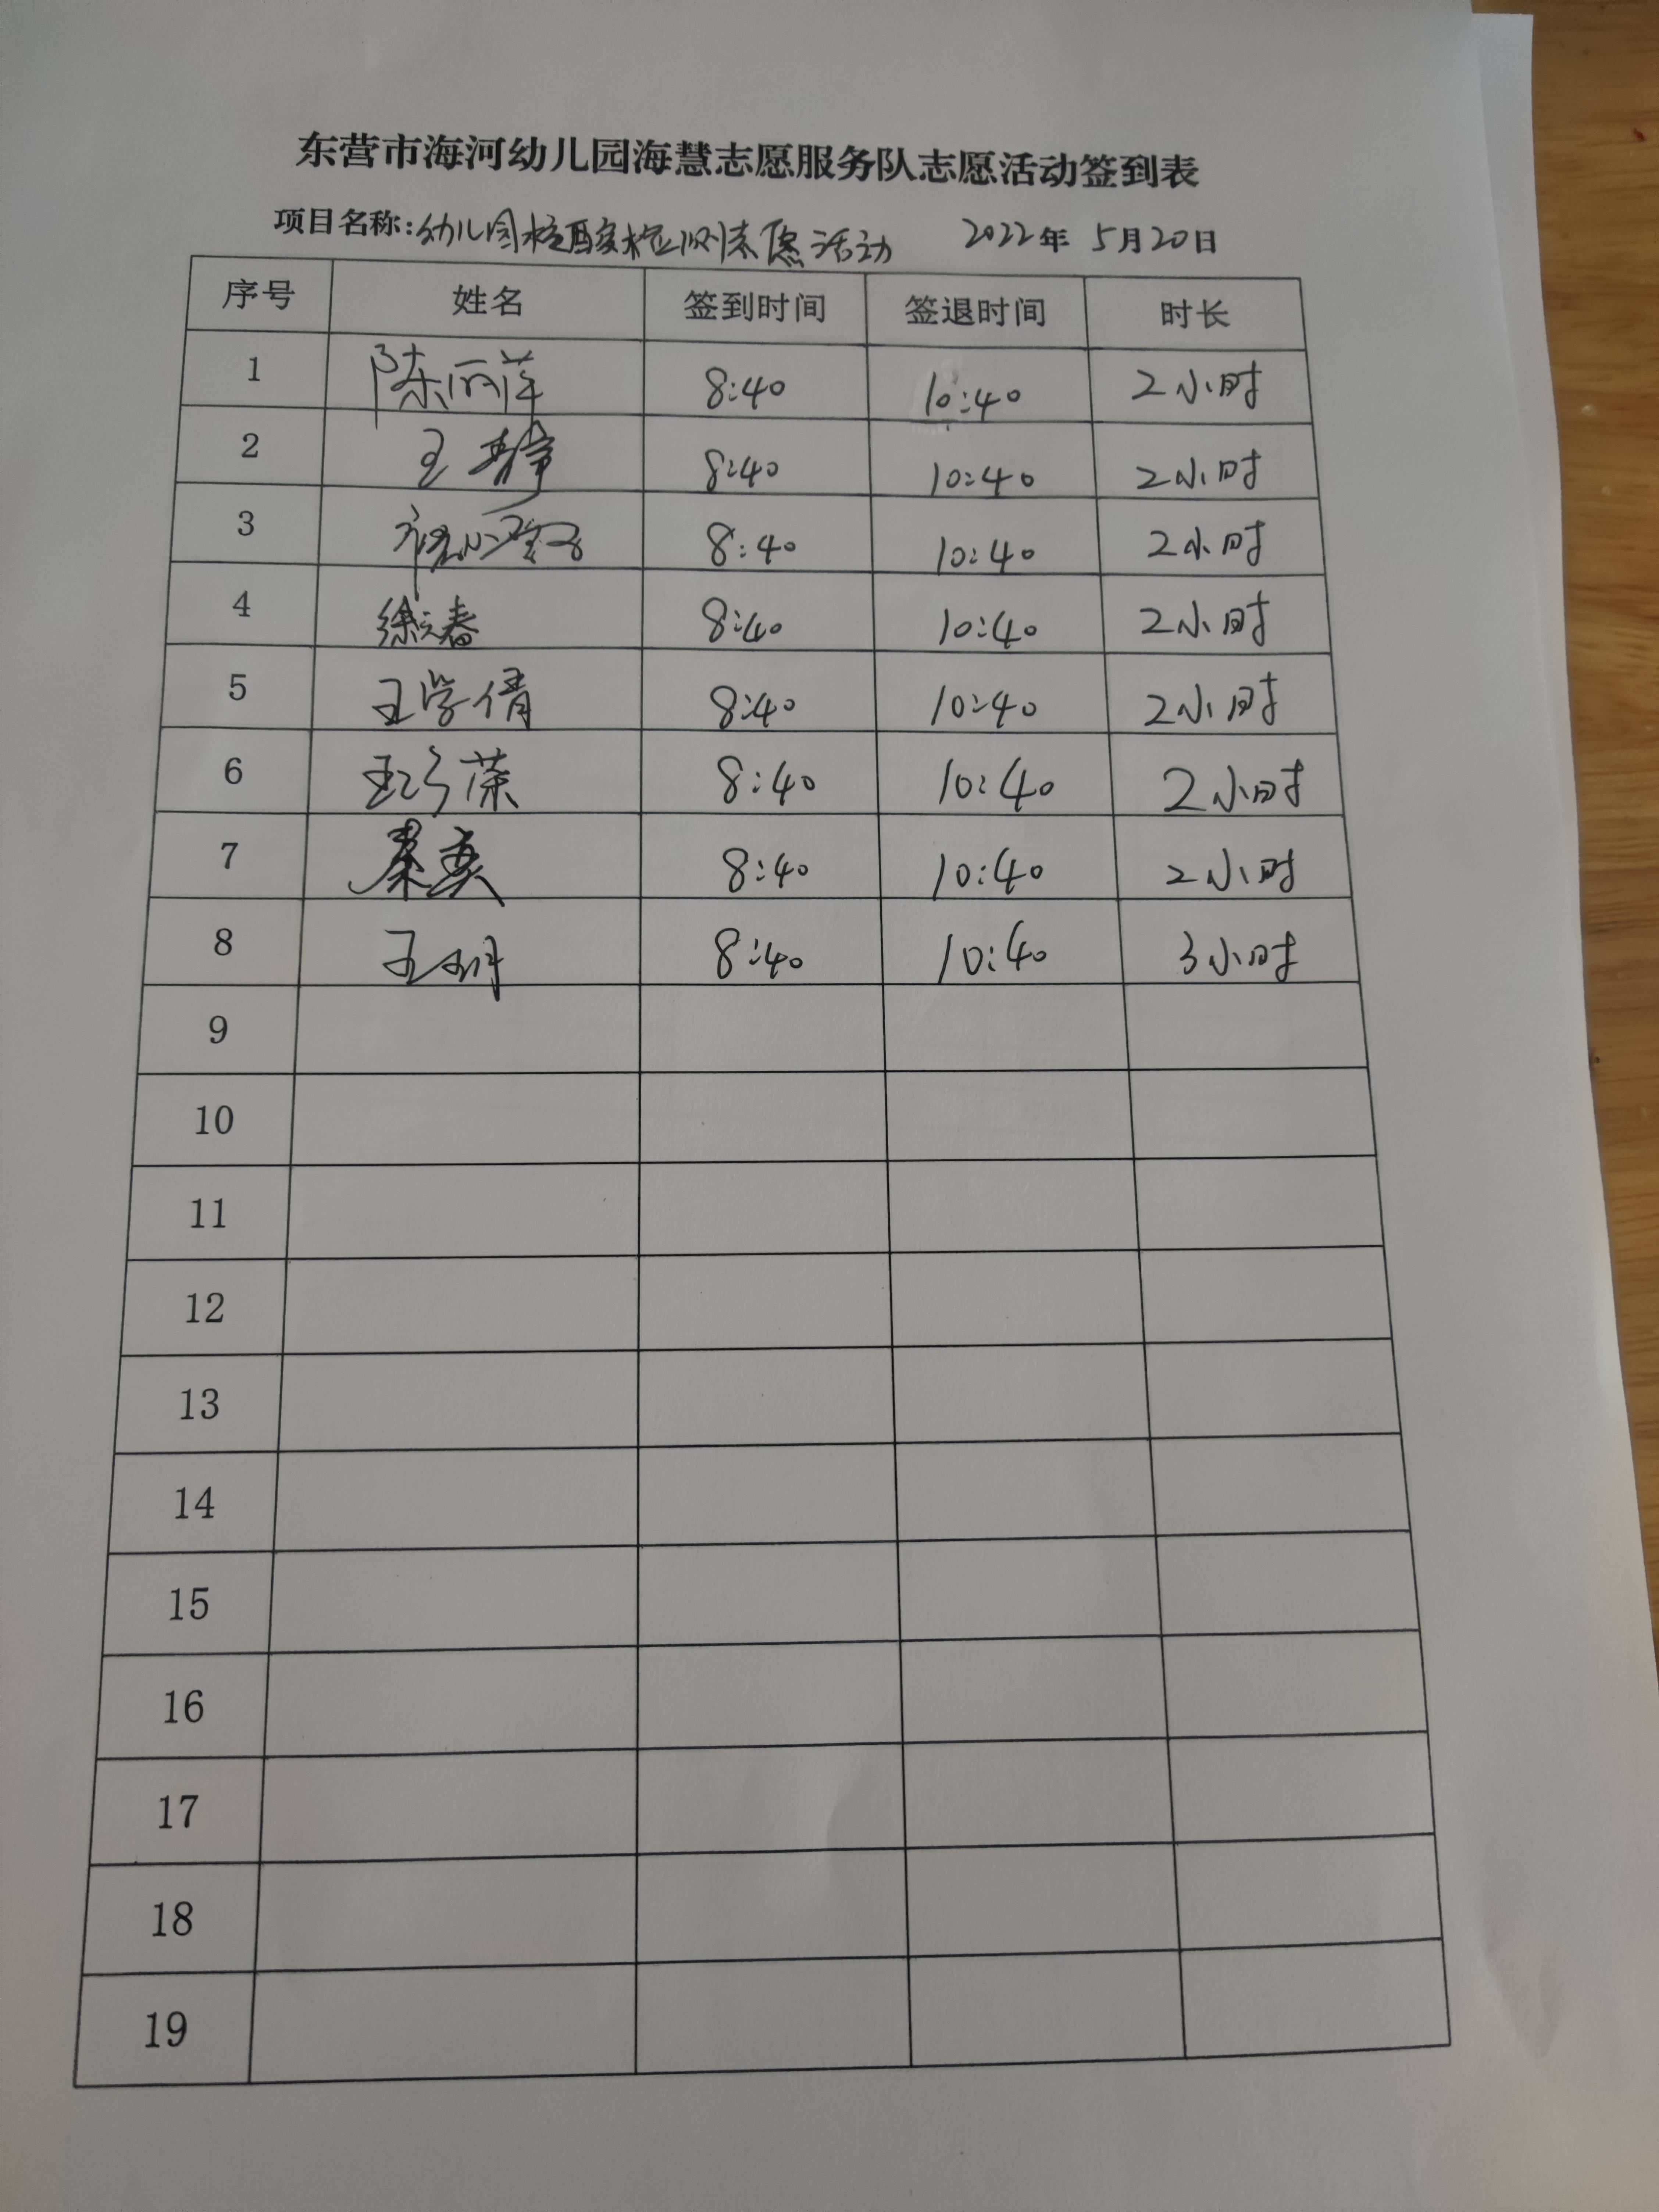 东营市海河幼儿园海慧志愿服务队志愿活动签到表
项目名称:幼儿园核酸检测志愿活动 2022年 5月20日
序号 姓名 签到时间 签退时间 时长
1 陈丽萍 8:40 10:40 2小时
2 王静 8:40 10:40 2小时
3 8:40 10:40 2小时
4 徐立春 8:40 10:40 2小时
5 王学倩 8:40 10:40 2小时
6 8:40 10:40 2小时
7 秦英 8:40 10:40 2小时
8 8:40 10:40 3小时
9
10
11
12
13
14
15
16
17
18
19